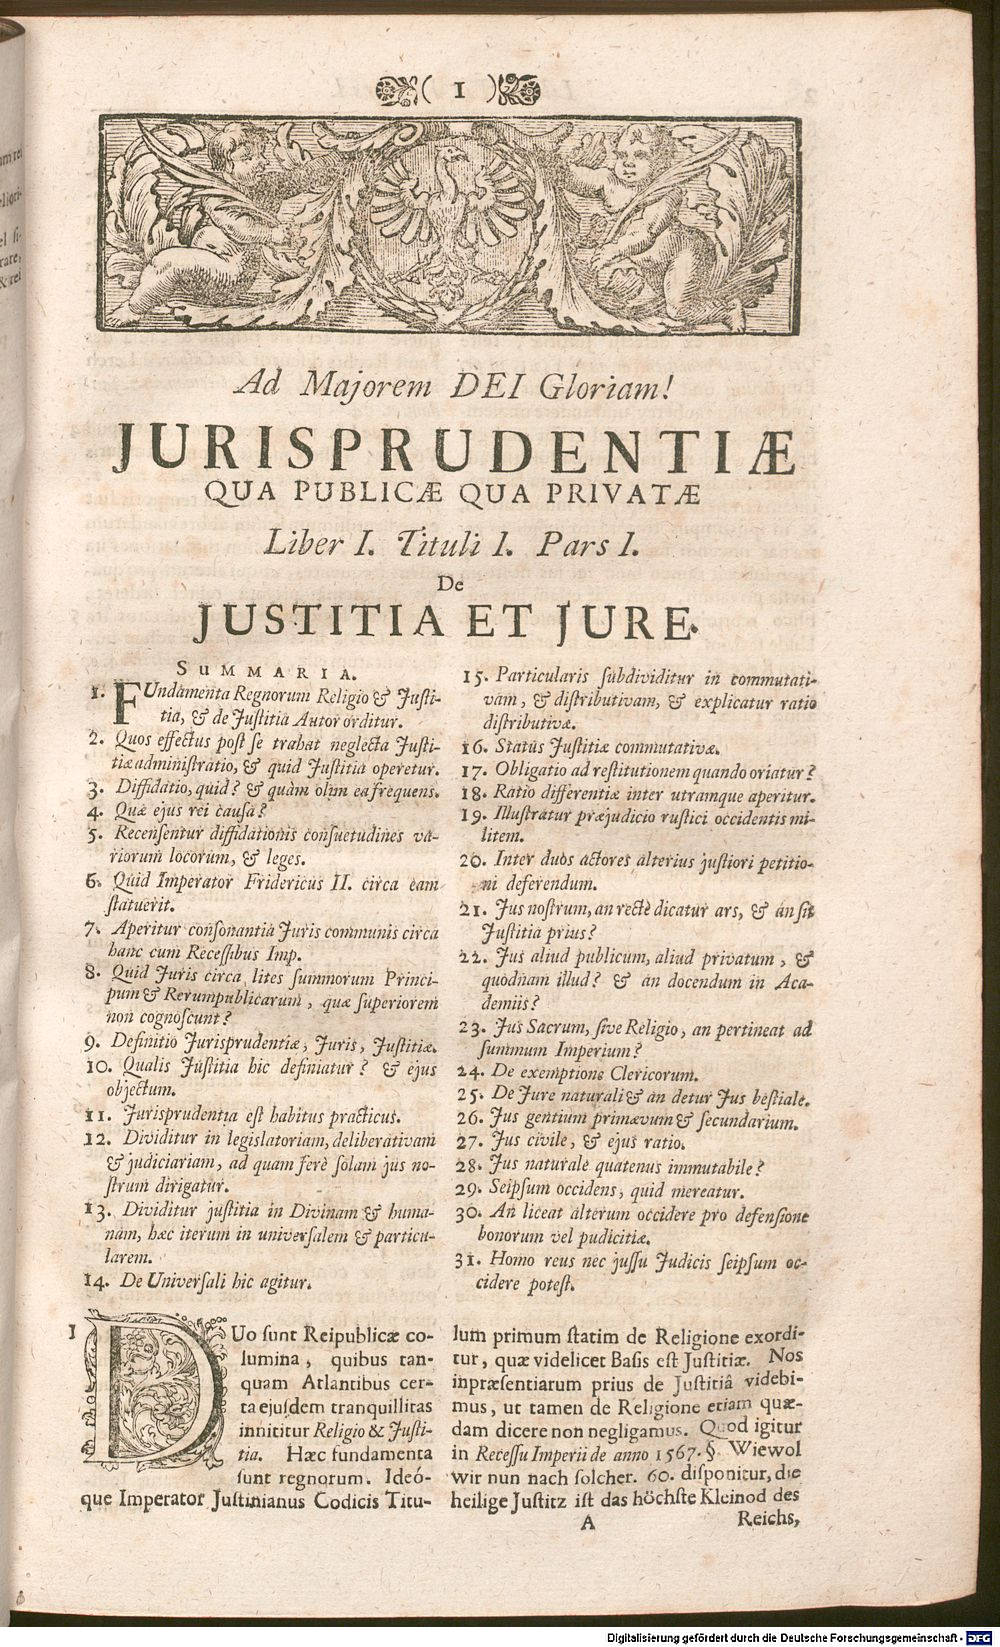 ( 1 )
Ad Majorem DEI Gloriam!
JURISPRUDENTIÆ
QUA PUBLICÆ QUA PRIVATÆ
Liber I. Tituli I. Pars I.
De
JUSTITIA ET JURE.
SUMMARIA.
1. FUndamenta Regnorum Religio & Justi-
tia, & de Justitia Autor orditur.
2. Quos effectus post se trahat neglecta Justi-
tiæ administratio, & quid Justitia operetur.
3. Diffidatio, quid? & quàm olim ea frequens.
4. Quæ ejus rei causa?
5. Recensentur diffidationis consuetudines va-
riorum locorum, & leges.
6. Quid Imperator Fridericus II. circa eam
statuerit.
7. Aperitur consonantia Juris communis circa
hanc cum Recessibus Imp.
8. Quid Juris circa lites summorum Princi-
pum & Rerumpublicarum, quæ superiorem
non cognoscunt?
9. Definitio Jurisprudentiæ, Juris, Justitiæ.
10. Qualis Justitia hic definiatur? & ejus
objectum.
11. Jurisprudentia est habitus practicus.
12. Dividitur in legislatoriam, deliberativam
& judiciariam, ad quam ferè solam jus no-
strum dirigatur.
13. Dividitur justitia in Divinam & huma-
nam, hæc iterum in universalem & particu-
larem.
14. De Universali hic agitur.
15. Particularis subdividitur in commutati-
vam, & distributivam, & explicatur ratio
distributivæ.
16. Status Justitiæ commutativæ.
17. Obligatio ad restitutionem quando oriatur?
18. Ratio differentiæ inter utramque aperitur.
19. Illustratur præjudicio rustici occidentis mi-
litem.
20. Inter duos actores alterius justiori petitio-
ni deferendum.
21. Jus nostrum, an rectè dicatur ars, & an sit
Justitia prius?
22. Jus aliud publicum, aliud privatum, &
quodnam illud? & an docendum in Aca-
demiis?
23. Jus Sacrum, sive Religio, an pertineat ad
summum Imperium?
24. De exemptione Clericorum.
25. De Jure naturali & an detur Jus bestiale.
26. Jus gentium primævum & secundarium.
27. Jus civile, & ejus ratio.
28. Jus naturale quatenus immutabile?
29. Seipsum occidens, quid mereatur.
30. An liceat alterum occidere pro defensione
bonorum vel pudicitiæ.
31. Homo reus nec jussu Judicis seipsum oc-
cidere potest.
1 DUo sunt Reipublicæ co-
lumina, quibus tan-
quam Atlantibus cer-
ta ejusdem tranquillitas
innititur Religio & Justi-
tia. Hæc fundamenta
sunt regnorum. Ideó-
que Imperator Justinianus Codicis Titu-
lum primum statim de Religione exordi-
tur, quæ videlicet Basis est Justitiæ. Nos
inpræsentiarum prius de Justitiâ videbi-
mus, ut tamen de Religione etiam quæ-
dam dicere non negligamus. Quod igitur
in Recessu Imperii de anno 1567. §. Wiewol
wir nun nach solcher. 60. disponitur, die
heilige Justitz ist das höchste Kleinod des
A
Reichs,
Digitalisierung gefördert durch die Deutsche Forschungsgemeinschaft - DFG